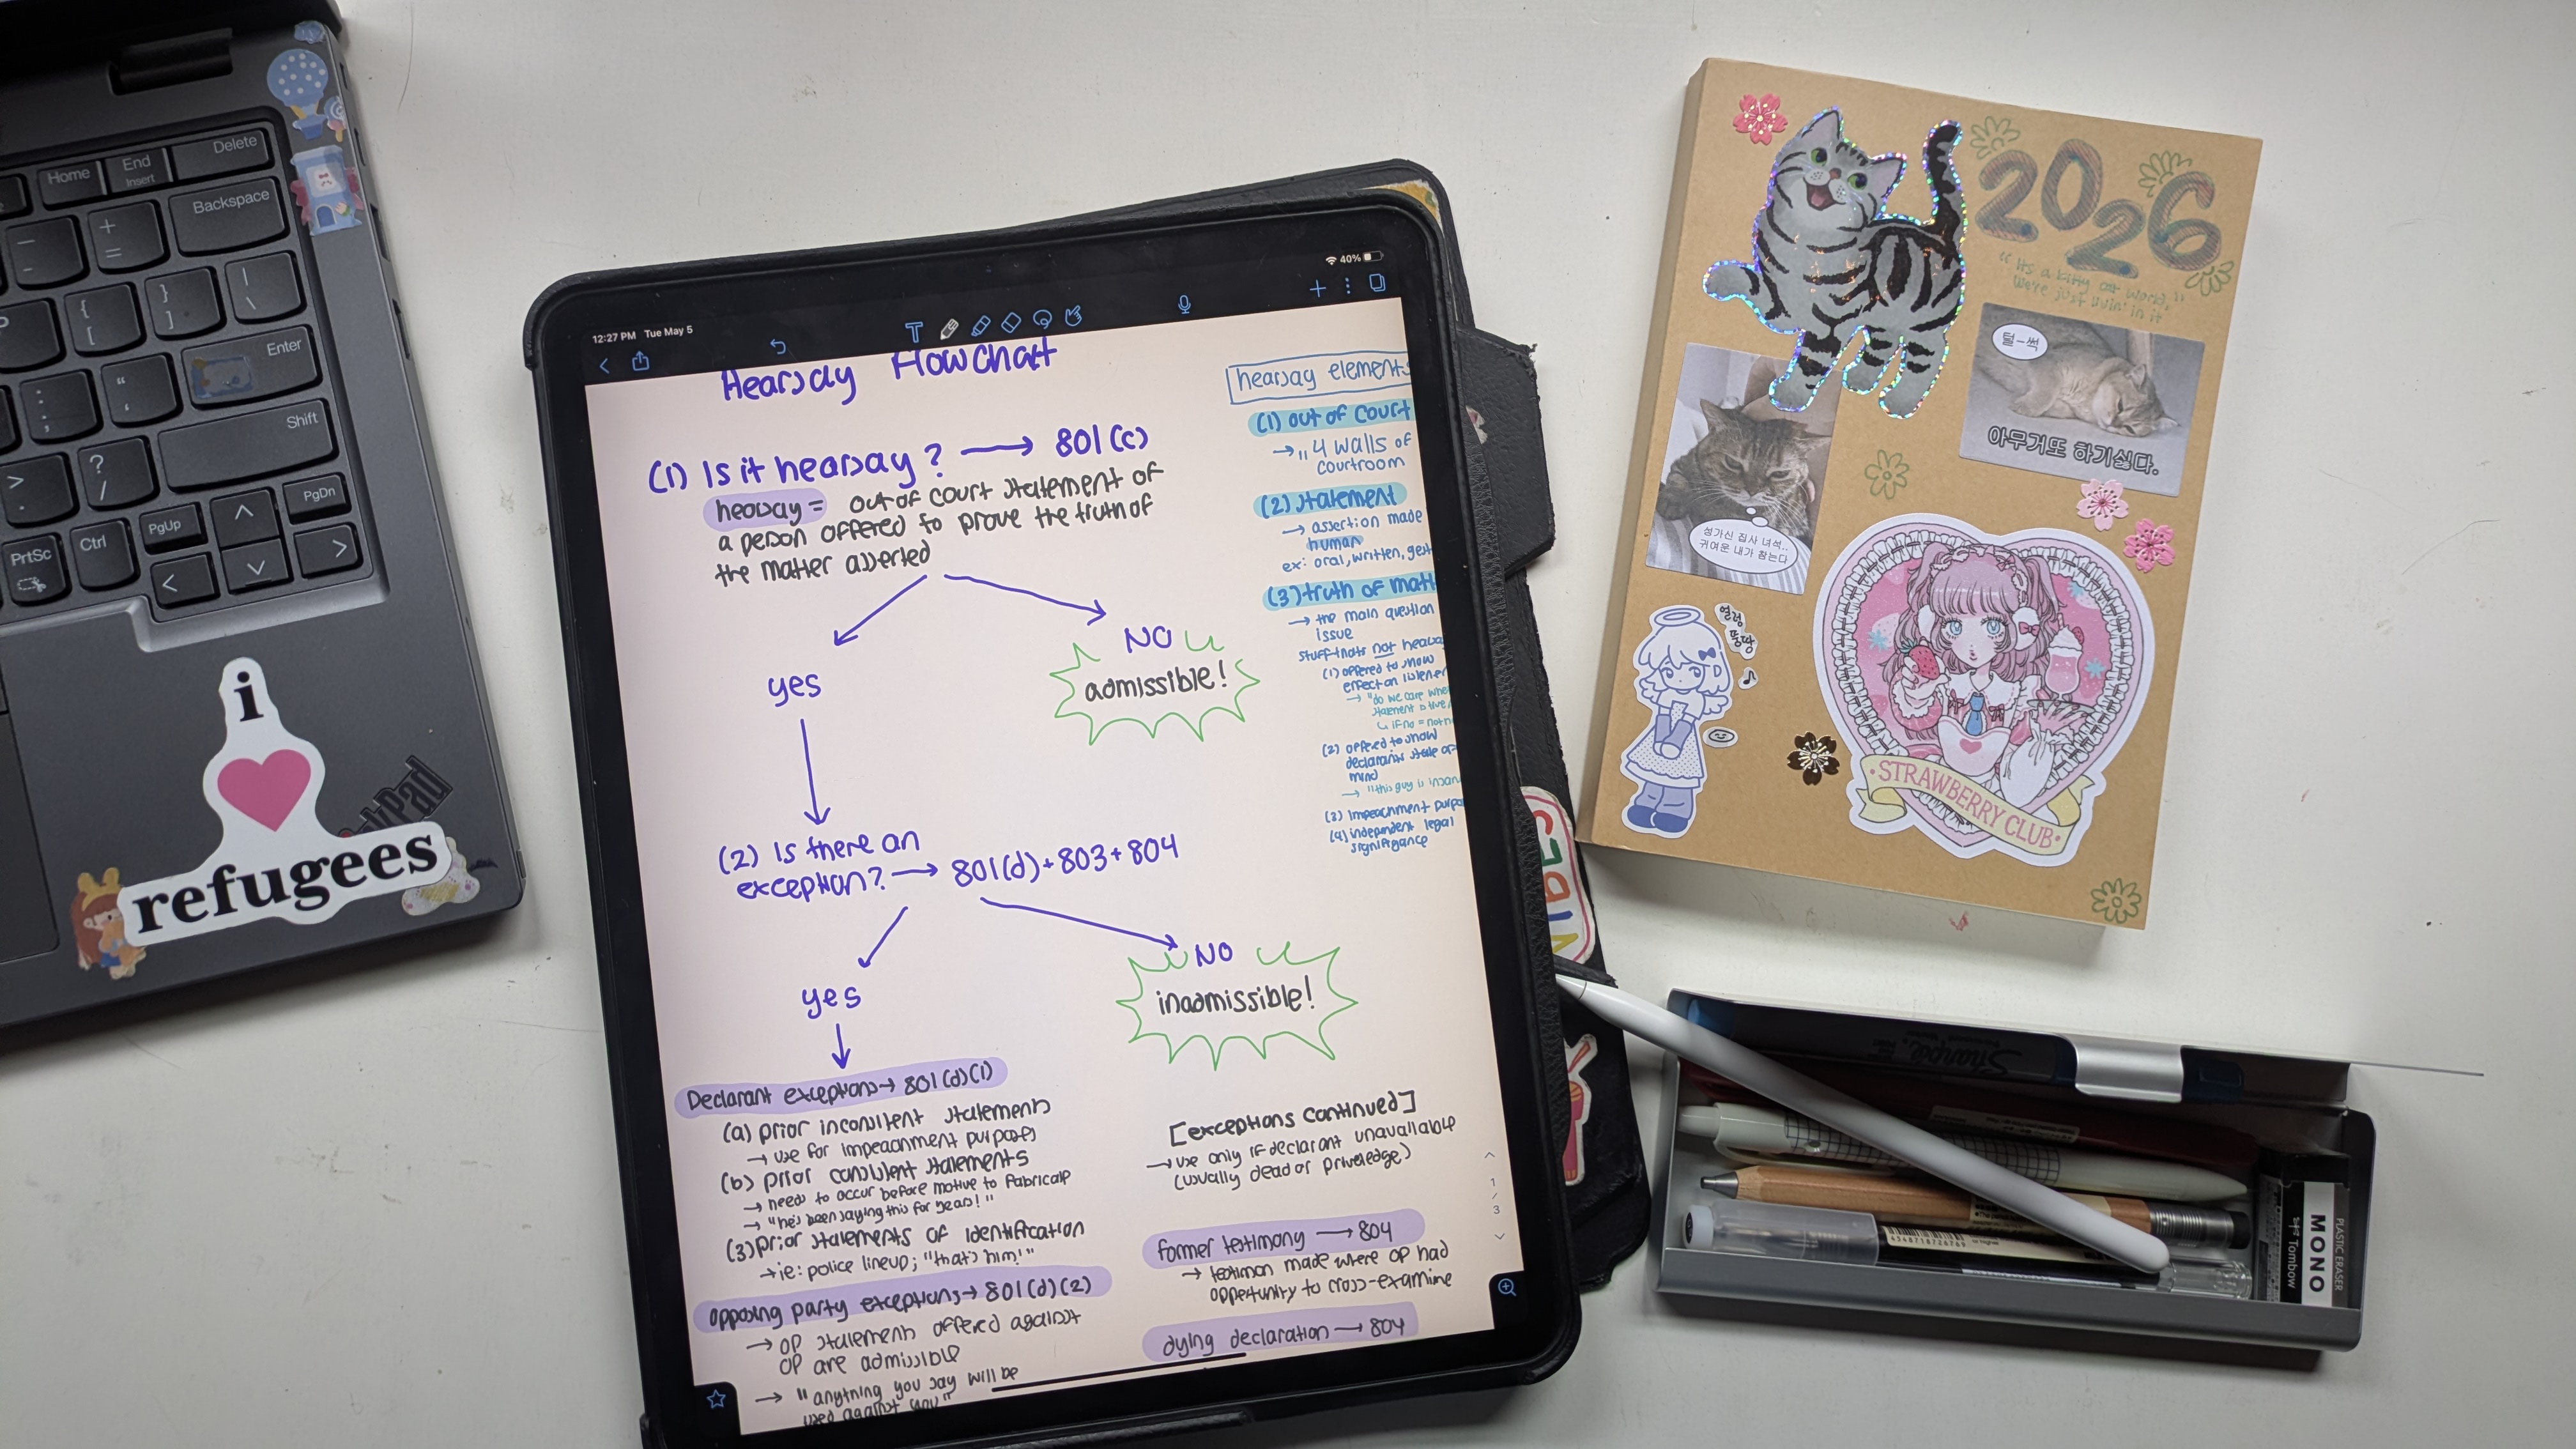 Home
End
Insert
Delete
Backspace
Enter
Shift
PrtSc
Ctrl
PgUp
PgDn
i
refugees
12:27 PM Tue May 5
40%
Hearsay Flowchart
(1) Is it hearsay? → 801(c)
hearsay = out of court statement of
a person offered to prove the truth of
the matter asserted
yes
NO
admissible!
(2) Is there an
exception? → 801(d) + 803 + 804
yes
NO
inadmissible!
Declarant exceptions → 801(d)(1)
(a) prior inconsitent statements
→ use for impeachment purposes
(b) prior consistent statements
→ needs to occur before motive to fabricate
→ "he's been saying this for years!"
(3) prior statements of identification
→ ie: police lineup; "that's him!"
opposing party exceptions → 801(d)(2)
→ OP statements offered against
OP are admissible
→ "anything you say will be
used against you"
[exceptions continued]
→ use only if declarant unavailable
(usually dead or priveledge)
former testimony → 804
→ testimon made where OP had
opportunity to cross-examine
dying declaration → 804
hearsay elements
(1) out of court
→ 4 walls of
courtroom
(2) statement
→ assertion made
human
ex: oral, written, gest
(3) truth of matt
→ the main question
issue
stuff thats not hearsa
(1) offered to show
effect on listener
→ "do we care whe
statement is true
↳ if no = not h
(2) offered to show
declarants state of
mind
→ "this guy is insan
(3) impeachment purpo
(4) independent legal
significance
1
/
3
2026
"its a kitty cat world,
we're just livin' in it"
털-썩
아무거또 하기싫다.
성가신 집사 녀석..
귀여운 내가 참는다
얼렁
뚱땅
STRAWBERRY CLUB
Sharpie
4548718726769
PLASTIC ERASER
MONO
Tombow